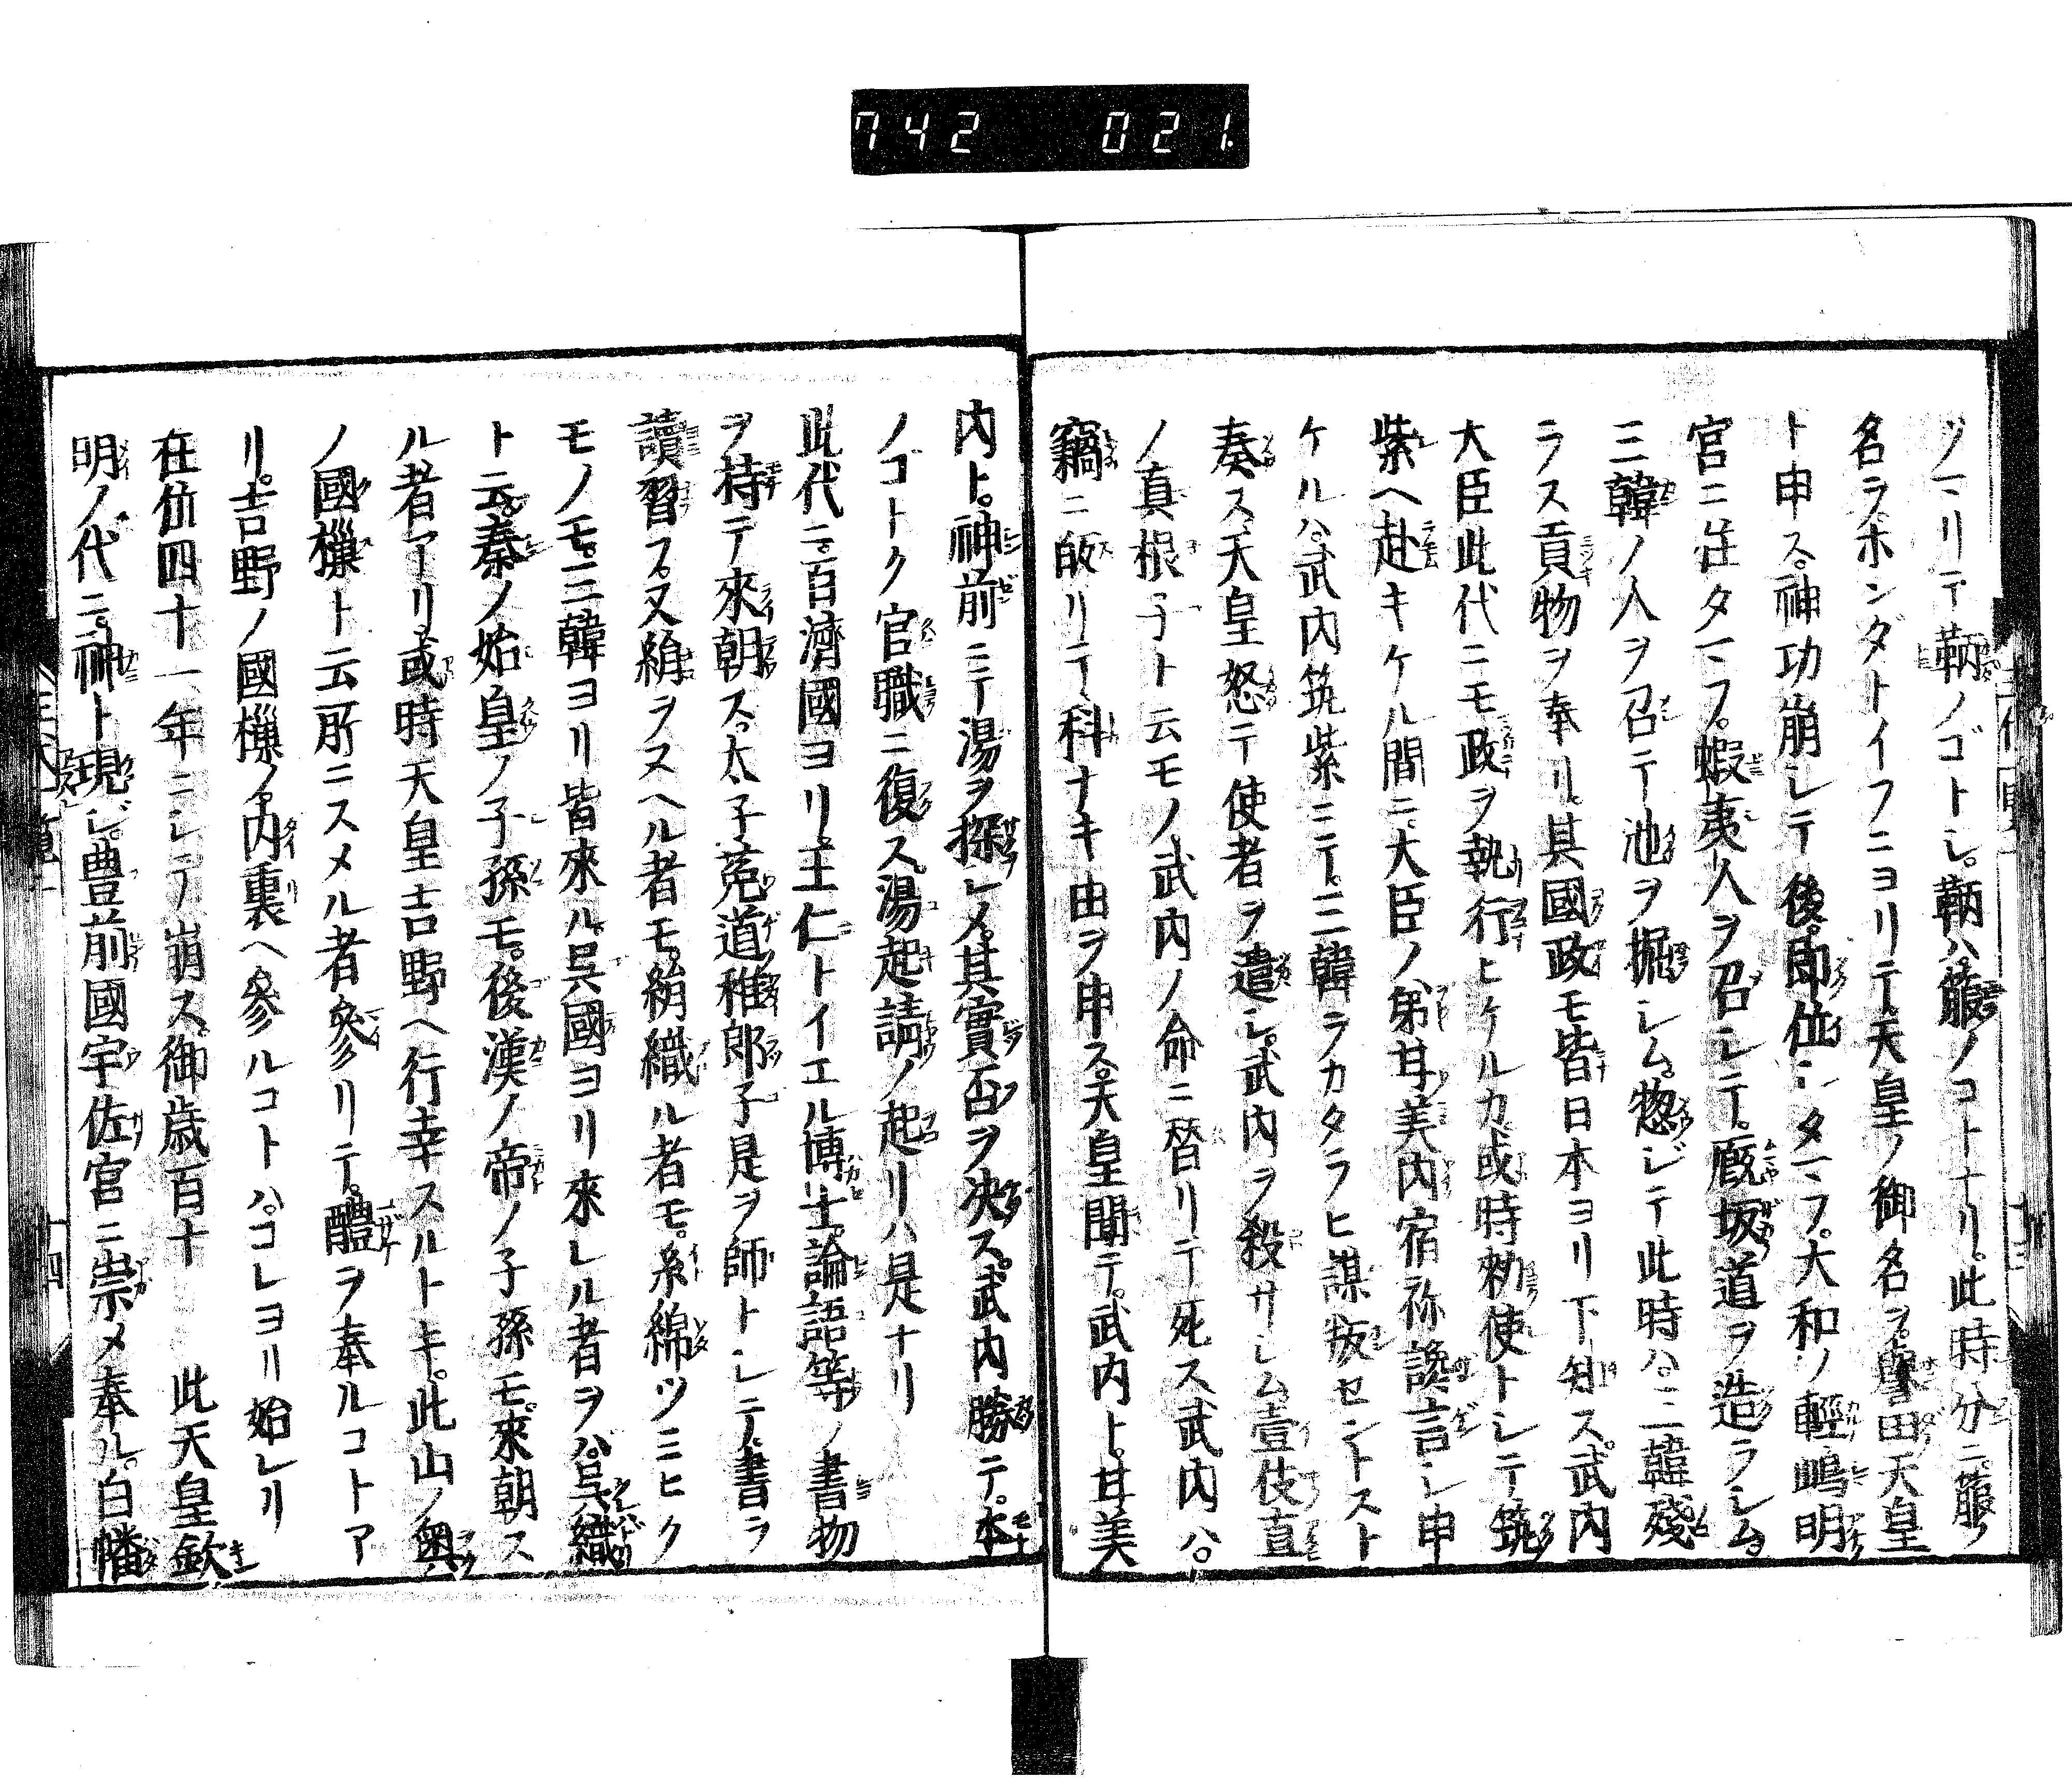 742 021.
ツマリテ鞆ノゴトシ。鞆ハ箙ノコトナリ。此時分ニ箙ノ
名ヲホンダトイフニヨリテ、天皇ノ御名ヲ譽田天皇
ト申ス。神功崩シテ後。即位シタマフ。大和ノ輕嶋明
宮ニ住タマフ。蝦夷人ヲ召シテ。厩坂道ヲ造ラシム。
三韓ノ人ヲ召テ池ヲ掘シム。惣ジテ此時ハ。三韓殘
ラス貢物ヲ奉リ。其國政モ皆日本ヨリ下知ス。武内
大臣此代ニモ政ヲ執行ヒケルカ。或時勅使トシテ筑
紫ヘ赴キケル間ニ。大臣ノ弟甘美内宿祢讒言シ申
ケルハ。武内筑紫ニテ。三韓ヲカタラヒ謀叛セントスト
奏ス。天皇怒テ使者ヲ遣シ。武内ヲ殺サシム。壹伎直
ノ真根子ト云モノ武内ノ命ニ替リテ死ス。武内ハ。
竊ニ皈リテ。科ナキ由ヲ申ス。天皇聞テ。武内ト。甘美
内ト。神前ニテ湯ヲ探シメ。其實否ヲ决ス。武内勝テ。本
ノゴトク官職ニ復ス。湯起請ノ起リハ是ナリ
此代ニ。百濟國ヨリ。王仁トイエル博士。論語等ノ書物
ヲ持テ來朝ス。太子菟道稚郎子是ヲ師トシテ。書ヲ
讀習フ。又絹ヲヌヘル者モ。絹織ル者モ。糸綿ツミヒク
モノモ。三韓ヨリ皆來ル。呉國ヨリ來レル者ヲハ。呉織
ト云。秦ノ始皇ノ子孫モ。後漢ノ帝ノ子孫モ。來朝ス
ル者アリ。或時天皇吉野ヘ行幸スルトキ。此山ノ奥
ノ國樔ト云所ニスメル者參リテ。醴ヲ奉ルコトア
リ。吉野ノ國樔ノ内裏ヘ參ルコトハ。コレヨリ始レリ
在位四十一年ニシテ崩ス。御歳百十 此天皇欽
明ノ代ニ。神ト現シ。豊前國宇佐宮ニ崇メ奉ル。白幡